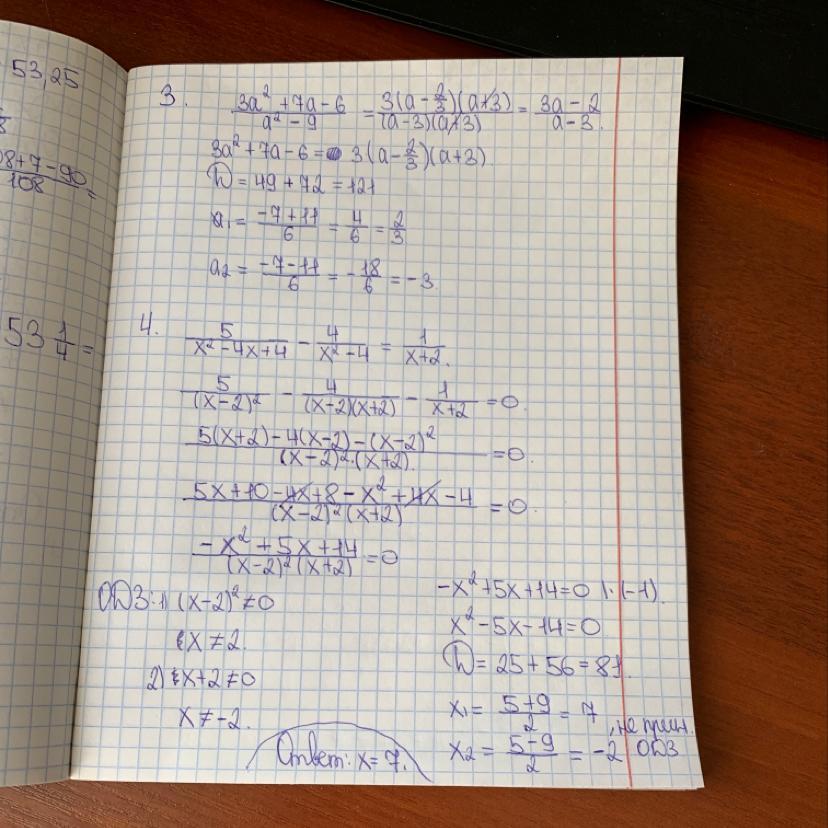 53,25
8+7-90
108 =
53 1/4 =
3. (3a² + 7a - 6)/(a² - 9) = (3(a - 2/3)(a+3))/((a-3)(a+3)) = (3a - 2)/(a - 3).
3a² + 7a - 6 = 3(a - 2/3)(a+3)
D = 49 + 72 = 121
a₁ = (-7+11)/6 = 4/6 = 2/3
a₂ = (-7-11)/6 = -18/6 = -3.
4. 5/(x² - 4x + 4) - 4/(x² - 4) = 1/(x+2).
5/(x-2)² - 4/((x-2)(x+2)) - 1/(x+2) = 0.
(5(x+2) - 4(x-2) - (x-2)²)/((x-2)²·(x+2)) = 0.
(5x + 10 - 4x + 8 - x² + 4x - 4)/((x-2)²(x+2)) = 0.
(-x² + 5x + 14)/((x-2)²(x+2)) = 0
ОДЗ: 1) (x-2)² ≠ 0
x ≠ 2.
2) x+2 ≠ 0
x ≠ -2.
-x² + 5x + 14 = 0 |·(-1).
x² - 5x - 14 = 0
D = 25 + 56 = 81.
x₁ = (5+9)/2 = 7
x₂ = (5-9)/2 = -2, не прин. ОДЗ
Ответ: x = 7.